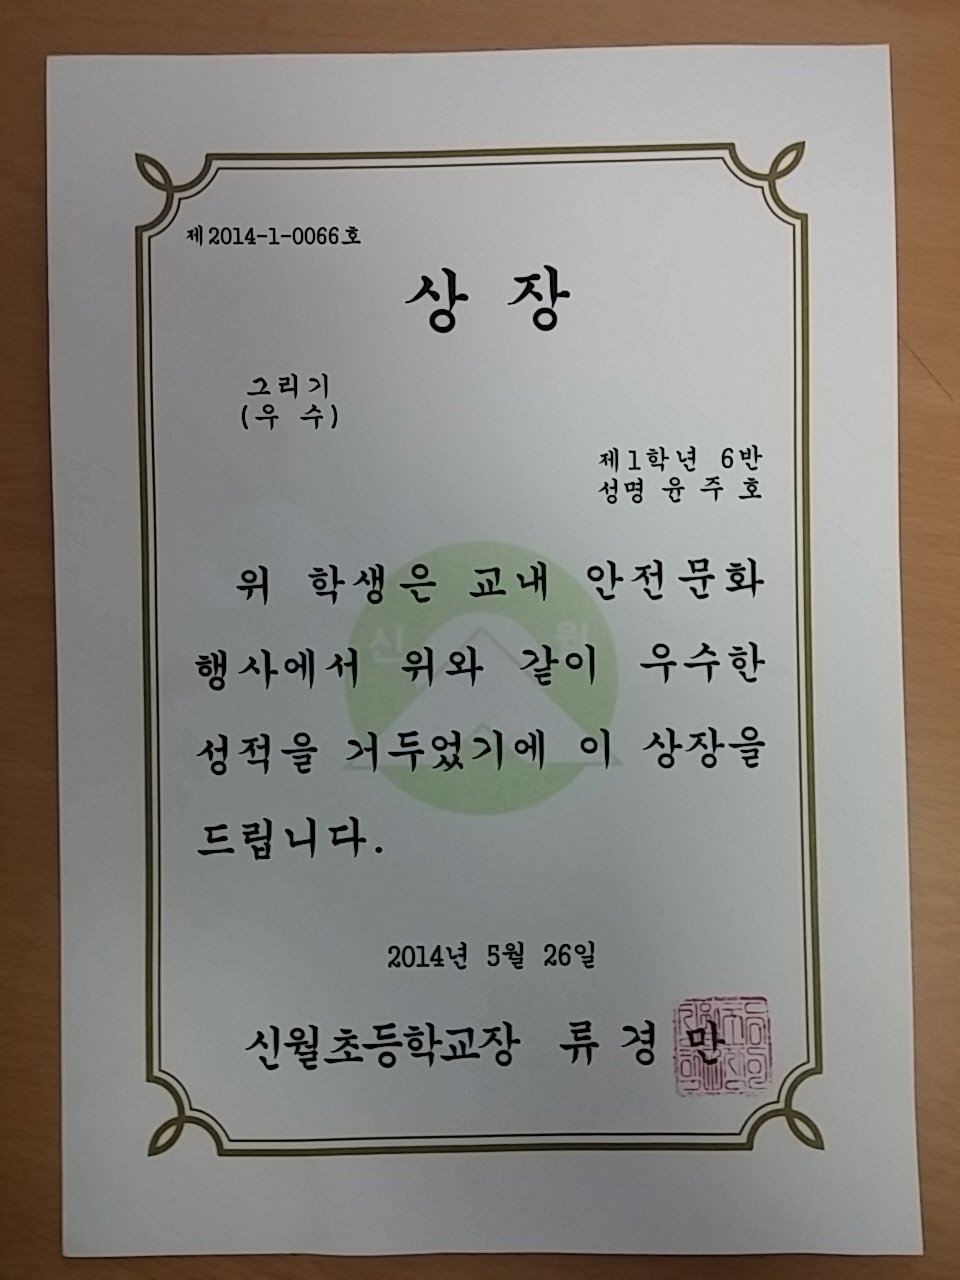 제2014-1-0066호
상 장
그리기
(우 수)
제1학년 6반
성명 윤주호
위 학생은 교내 안전문화
행사에서 위와 같이 우수한
성적을 거두었기에 이 상장을
드립니다.
신 월
2014년 5월 26일
신월초등학교장 류경만